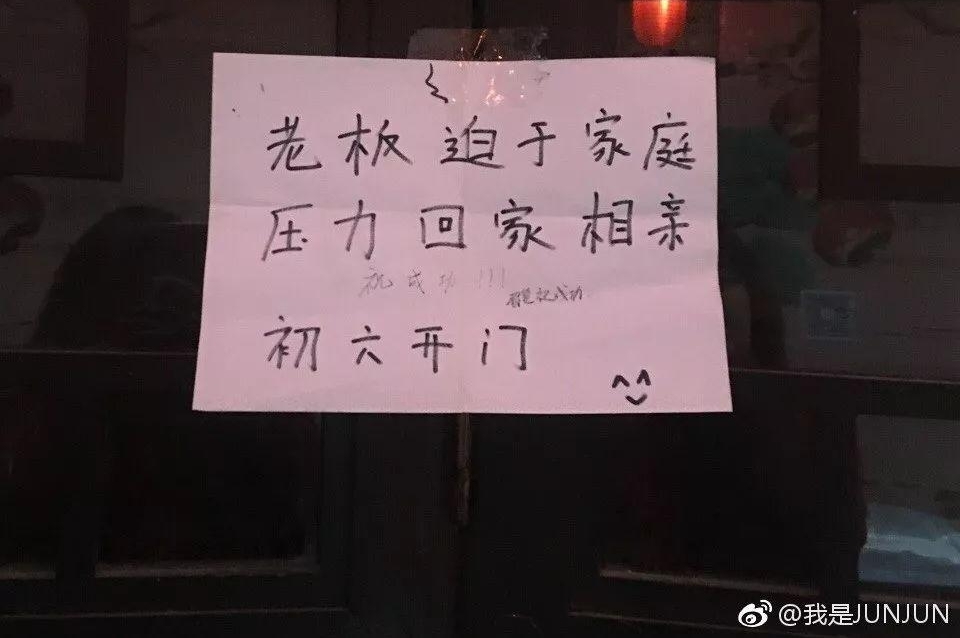 老板迫于家庭
压力回家相亲
祝成功!!!
祝成功
初六开门
@我是JUNJUN